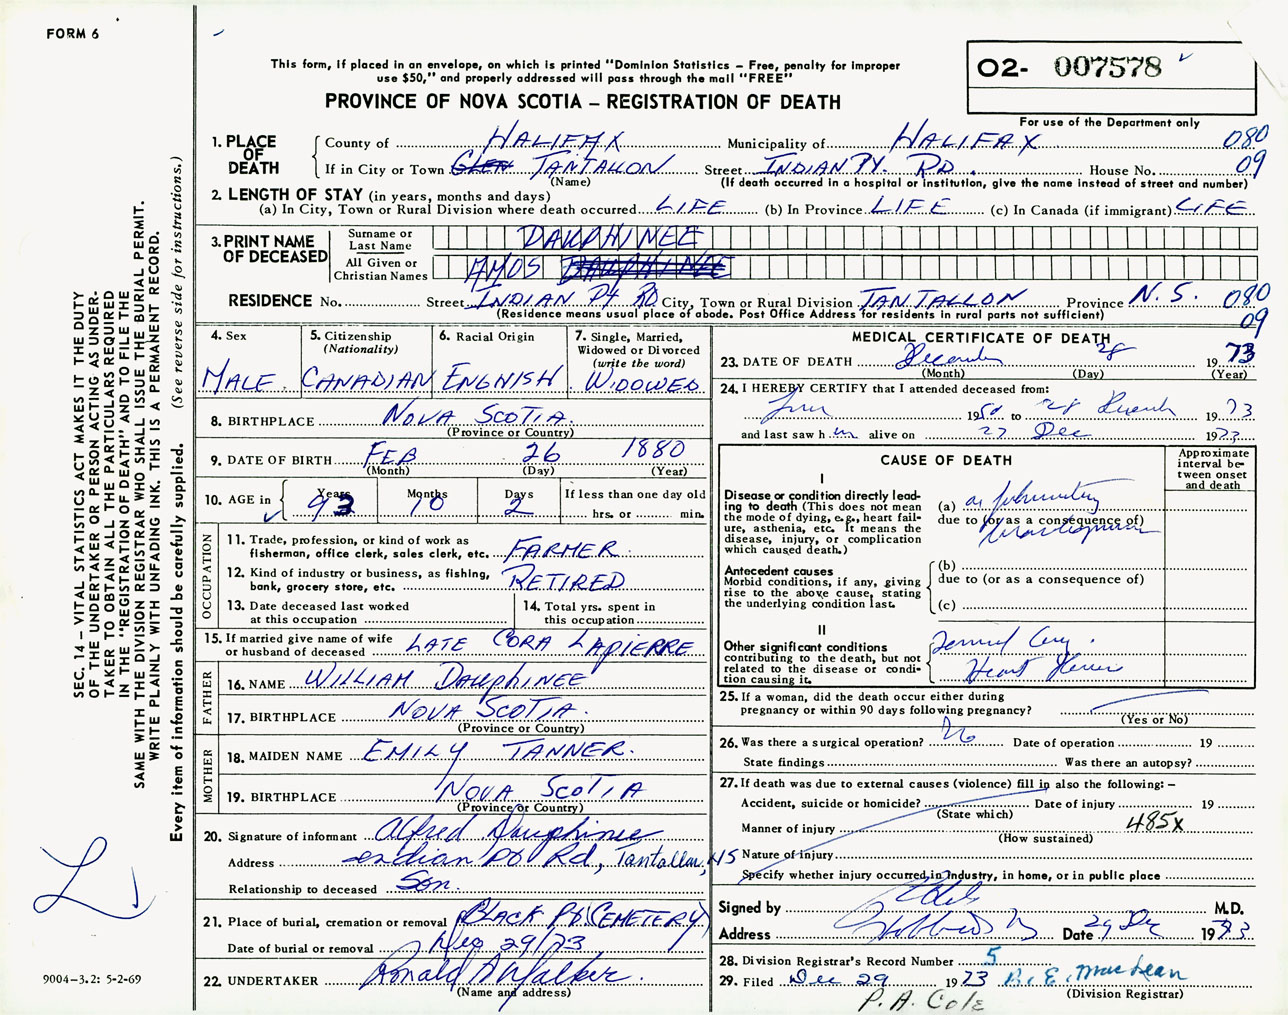 FORM 6
This form, if placed in an envelope, on which is printed "Dominion Statistics – Free, penalty for improper
use $50," and properly addressed will pass through the mail "FREE"
PROVINCE OF NOVA SCOTIA – REGISTRATION OF DEATH
02- 007578
For use of the Department only
SEC. 14 – VITAL STATISTICS ACT MAKES IT THE DUTY
OF THE UNDERTAKER OR PERSON ACTING AS UNDER-
TAKER TO OBTAIN ALL THE PARTICULARS REQUIRED
IN THE "REGISTRATION OF DEATH" AND TO FILE THE
SAME WITH THE DIVISION REGISTRAR WHO SHALL ISSUE THE BURIAL PERMIT.
WRITE PLAINLY WITH UNFADING INK. THIS IS A PERMANENT RECORD.
Every item of information should be carefully supplied. (See reverse side for instructions.)
1. PLACE OF DEATH
County of HALIFAX Municipality of HALIFAX 080
If in City or Town GLEN TANTALLON Street INDIAN PT. RD. House No. 09
(Name) (If death occurred in a hospital or institution, give the name instead of street and number)
2. LENGTH OF STAY (in years, months and days)
(a) In City, Town or Rural Division where death occurred LIFE (b) In Province LIFE (c) In Canada (if immigrant) LIFE
3. PRINT NAME OF DECEASED
Surname or Last Name DAUPHINEE
All Given or Christian Names AMOS DAUPHINEE
RESIDENCE No. Street INDIAN PT RD City, Town or Rural Division TANTALLON Province N.S. 080
(Residence means usual place of abode. Post Office Address for residents in rural parts not sufficient) 09
4. Sex
MALE
5. Citizenship (Nationality)
CANADIAN
6. Racial Origin
ENGNISH
7. Single, Married, Widowed or Divorced (write the word)
WIDOWED
8. BIRTHPLACE NOVA SCOTIA.
(Province or Country)
9. DATE OF BIRTH FEB 26 1880
(Month) (Day) (Year)
10. AGE in Years 93 Months 10 Days 2 If less than one day old hrs. or min.
OCCUPATION
11. Trade, profession, or kind of work as
fisherman, office clerk, sales clerk, etc. FARMER.
12. Kind of industry or business, as fishing,
bank, grocery store, etc. RETIRED
13. Date deceased last worked
at this occupation
14. Total yrs. spent in
this occupation
15. If married give name of wife
or husband of deceased LATE CORA LAPIERRE
FATHER
16. NAME WILLIAM DAUPHINEE
17. BIRTHPLACE NOVA SCOTIA.
(Province or Country)
MOTHER
18. MAIDEN NAME EMILY TANNER.
19. BIRTHPLACE NOVA SCOTIA
(Province or Country)
20. Signature of informant Alfred Dauphinee
Address Indian Pt Rd, Tantallon, NS
Relationship to deceased Son.
21. Place of burial, cremation or removal BLACK PT (CEMETERY)
Date of burial or removal Dec 29/73
22. UNDERTAKER Ronald A Walker.
(Name and address)
MEDICAL CERTIFICATE OF DEATH
23. DATE OF DEATH December 28 1973
(Month) (Day) (Year)
24. I HEREBY CERTIFY that I attended deceased from:
1950 to 28 December 1973
and last saw him alive on 27 Dec 1973
CAUSE OF DEATH
Approximate interval between onset and death
I
Disease or condition directly lead-
ing to death (This does not mean
the mode of dying, e.g., heart fail-
ure, asthenia, etc. It means the
disease, injury, or complication
which caused death.)
(a)
due to (or as a consequence of)
Antecedent causes
Morbid conditions, if any, giving
rise to the above cause, stating
the underlying condition last.
(b)
due to (or as a consequence of)
(c)
II
Other significant conditions
contributing to the death, but not
related to the disease or condi-
tion causing it.
Heart
25. If a woman, did the death occur either during
pregnancy or within 90 days following pregnancy?
(Yes or No)
26. Was there a surgical operation? No Date of operation 19
State findings Was there an autopsy?
27. If death was due to external causes (violence) fill in also the following: –
Accident, suicide or homicide? Date of injury 19
(State which)
Manner of injury 485X
(How sustained)
Nature of injury
Specify whether injury occurred in Industry, in home, or in public place
Signed by M.D.
Address Hubbards Date 29 Dec 1973
28. Division Registrar's Record Number 5
29. Filed Dec 29 1973 B. E. MacLean
(Division Registrar)
P. A. Cole
9004–3.2: 5-2-69